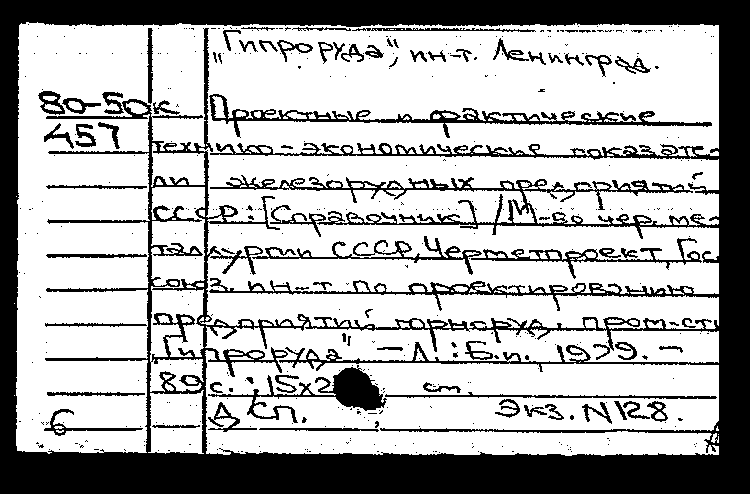 „Гипроруда", ин-т. Ленинград.
80-50к Проектные и фактические
457 технико-экономические показате-
ли железорудных предприятий
СССР: [Справочник] / М-во чер. ме-
таллургии СССР, Черметпроект, Гос.
союз. ин-т по проектированию
предприятий горноруд. пром-сти
„Гипроруда". — Л.: Б.и., 1979. —
89 с.; 15х2 см.
6 Д СП. Экз. N128.